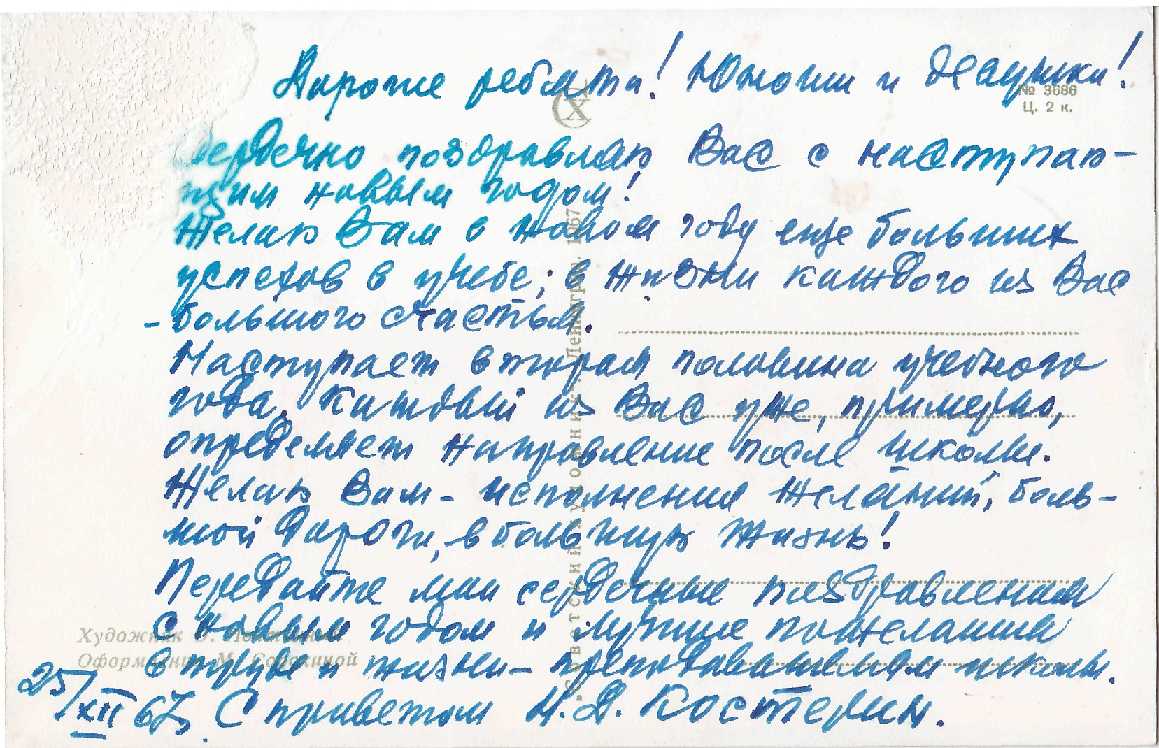 Дорогие ребята! Юноши и девушки!
№ 3686
Ц. 2 к.
Сердечно поздравляю Вас с наступаю-
щим новым годом!
Желаю Вам в новом году еще больших
успехов в учебе; в жизни каждого из Вас
- большого счастья.
Наступает вторая половина учебного
года. Каждый из Вас уже, примерно,
определяет направление после школы.
Желаю Вам - исполнения желаний, боль-
шой дороги, в большую жизнь!
Передайте мои сердечные поздравления
с новым годом и лучшие пожелания
в труде и жизни - преподавателям школы.
25/XII 67. С приветом Н. Д. Костерин.
Художник
Оформление М. Сорокиной
Советский художник. Ленинград. 1967